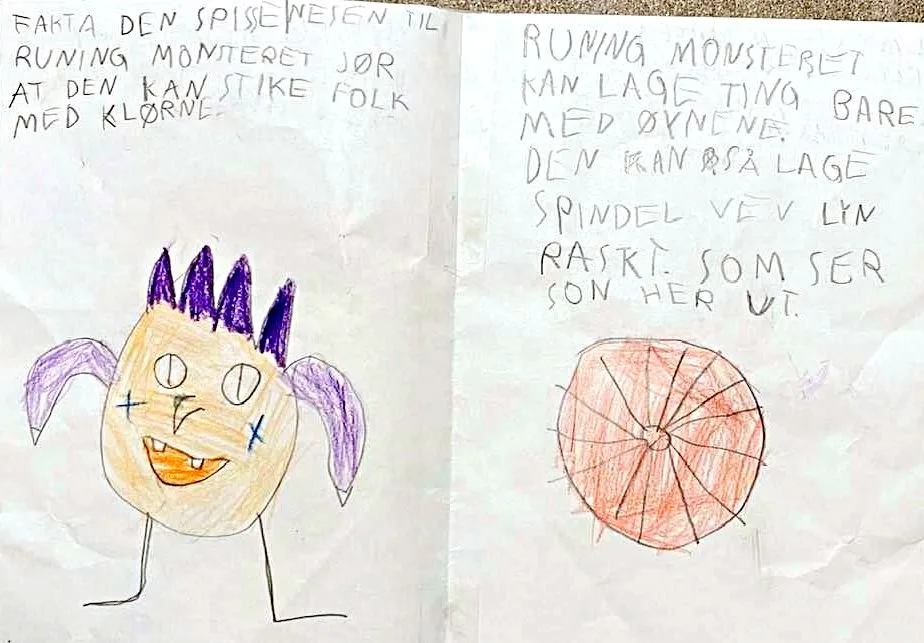 FAKTA DEN SPISSE NESEN TIL
RUNING MONSTERET JØR
AT DEN KAN STIKE FOLK
MED KLØRNE
RUNING MONSTERET
KAN LAGE TING BARE
MED ØYNENE.
DEN KAN ÅSÅ LAGE
SPINDEL VEV LYN
RASKT. SOM SER
SON HER UT.